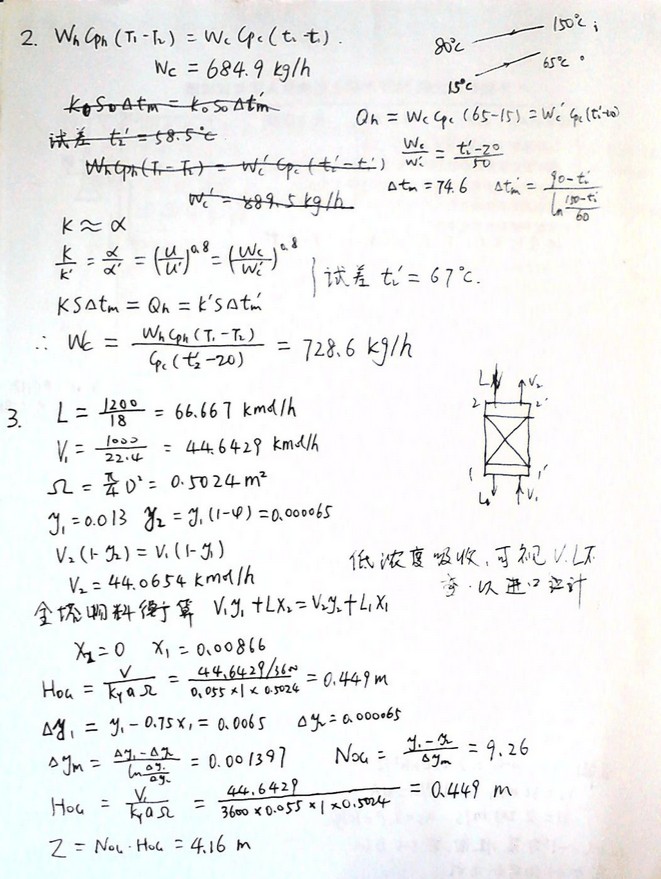 2. WhCph(T₁-T₂) = WcCpc(t₂-t₁).
Wc = 684.9 kg/h
80℃ 150℃;
15℃ 65℃。
K₀S₀Δtm = K₀S₀Δtm'
试差 t₂' = 58.5℃
WhCph(T₁-T₂) = Wc'Cpc(t₂'-t₁')
Wc' = 889.5 kg/h
Qh = WcCpc(65-15) = Wc'Cpc(t₂'-20)
Wc/Wc' = (t₂'-20)/50
Δtm = 74.6 Δtm' = (90-t₂')/(ln (150-t₂')/60)
K ≈ α
K/K' = α/α' = (u/u')^0.8 = (Wc/Wc')^0.8
KSΔtm = Qh = K'SΔtm'
试差 t₂' = 67℃.
∴ Wc = WhCph(T₁-T₂)/(Cpc(t₂'-20)) = 728.6 kg/h
3. L = 1200/18 = 66.667 kmol/h
V₁ = 1000/22.4 = 44.6429 kmol/h
Ω = π/4 D² = 0.5024 m²
y₁=0.013 y₂ = y₁(1-φ) = 0.000065
V₂(1-y₂) = V₁(1-y₁)
V₂ = 44.0654 kmol/h
L V₂
2 2'
1 1'
L₁ V₁
低浓度吸收,可视V.L不
变.以进口运计
全塔物料衡算 V₁y₁+LX₂=V₂y₂+L₁X₁
X₂=0 x₁=0.00866
HOG = V/(kyaΩ) = (44.6429/3600)/(0.055×1×0.5024) = 0.449 m
Δy₁ = y₁-0.75x₁ = 0.0065 Δy₂=0.000065
Δym = (Δy₁-Δy₂)/(ln Δy₁/Δy₂) = 0.001397 NOG = (y₁-y₂)/Δym = 9.26
HOG = V₁/(kyaΩ) = 44.6429/(3600×0.055×1×0.5024) = 0.449 m
Z = NOG·HOG = 4.16 m